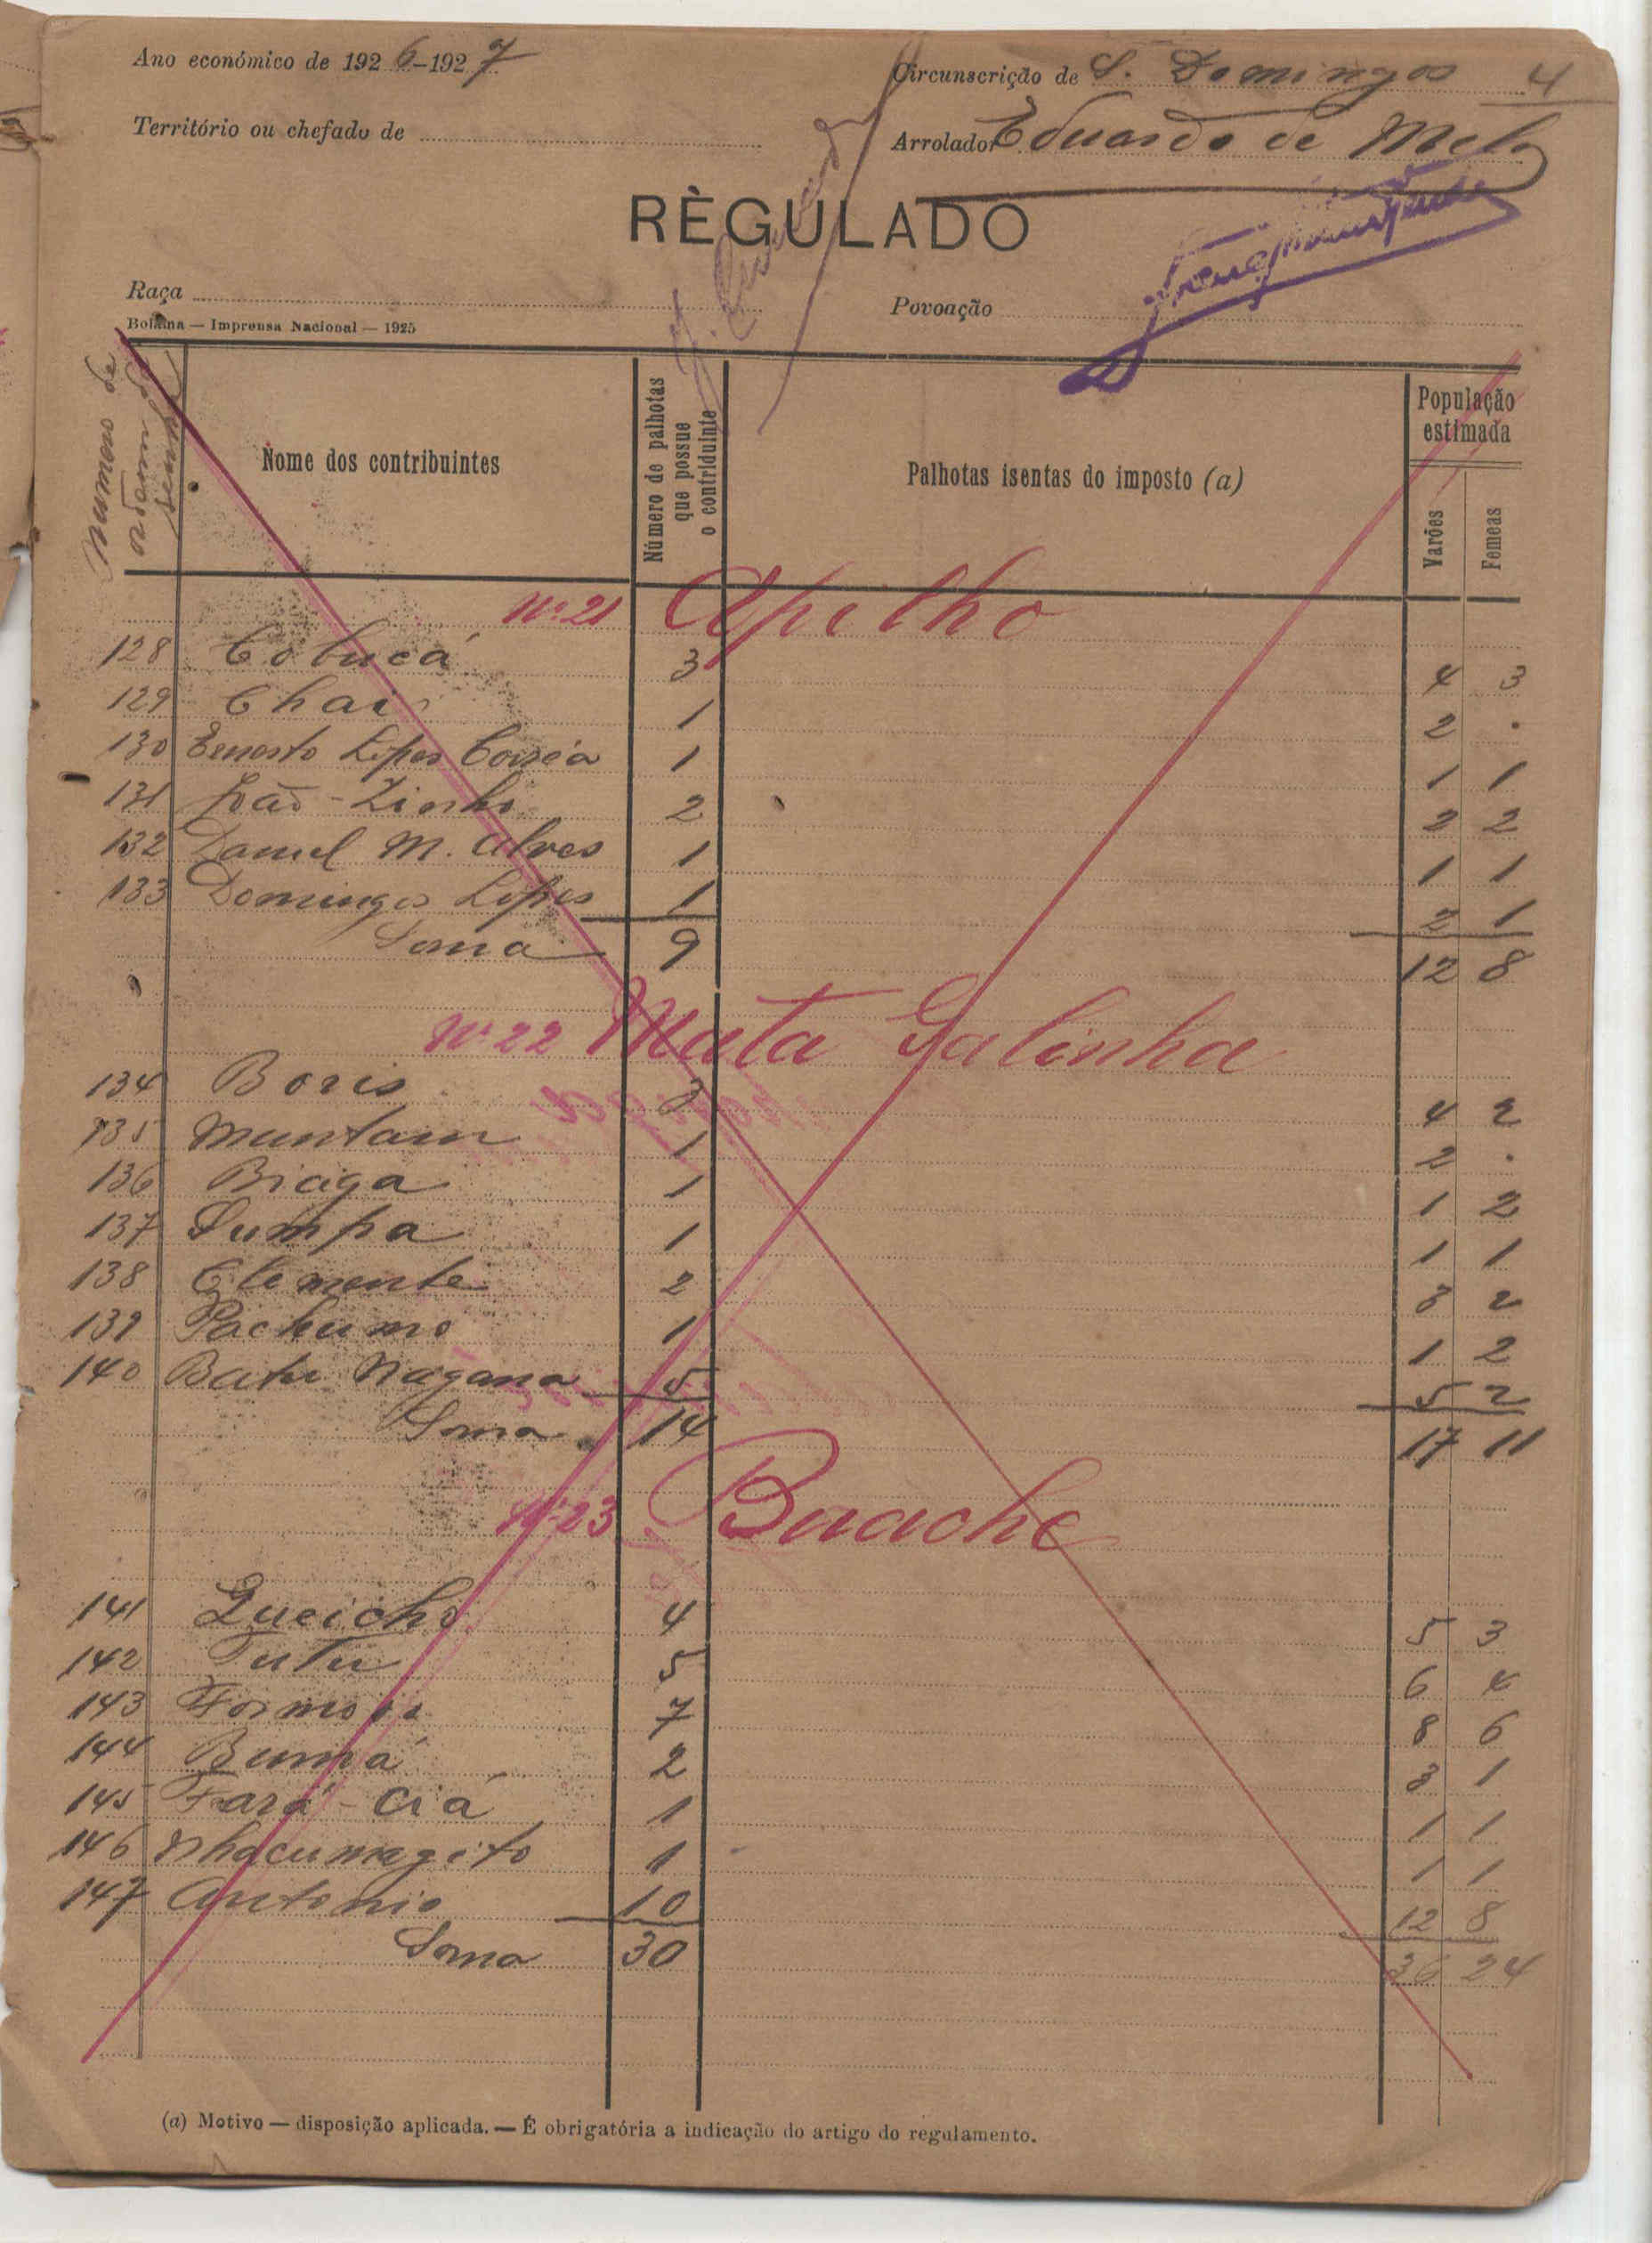 Ano económico de 1926-1927
Circunscrição de S. Domingos 4
Território ou chefado de
Arrolador Eduardo de Melo
RÈGULADO
Raça
Povoação
Bolama — Imprensa Nacional — 1925
Numeros de ordem
Nome dos contribuintes
Número de palhotas que possue o contriduinte
Palhotas isentas do imposto (a)
População estimada
Varões Femeas
Nº 21 Apilho
128 Cobucá 3 4 3
129 Chai 1 2 .
130 Ernesto Lopes Corrêa 1 1 1
131 João-Zinho 2 2 2
132 Daniel M. Alves 1 1 1
133 Domingos Lopes 1 2 1
Soma 9 12 8
Nº 22 Mata Galinha
134 Boris 3 4 2
135 Muntam 1 2 .
136 Biaga 1 1 2
137 Sumpa 1 1 1
138 Clemente 2 3 2
139 Pachumo 1 1 2
140 Batu Nagana 5 5 2
Soma 14 17 11
Nº 23 Buache
141 Queicho 4 5 3
142 Tutu 5 6 4
143 Formosa 7 8 6
144 Bumá 2 3 1
145 Fará-Ciá 1 1 1
146 Nhacumagito 1 1 1
147 Antonio 10 12 8
Soma 30 36 24
(a) Motivo — disposição aplicada. — É obrigatória a indicação do artigo do regulamento.